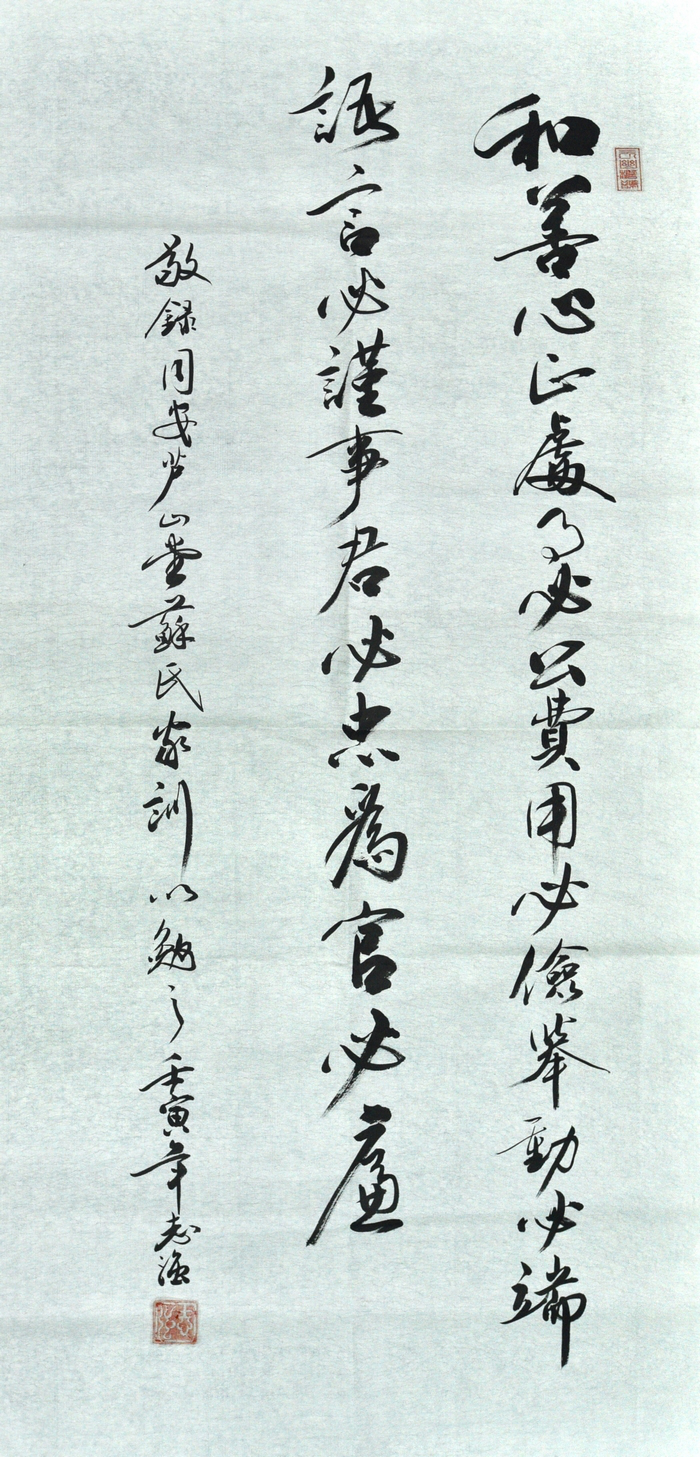 和善心正處事必公費用必儉舉動必端
語言必謹事君必忠爲官必廉
敬録同安芦山堂蘇氏家訓以勉之壬寅年志強